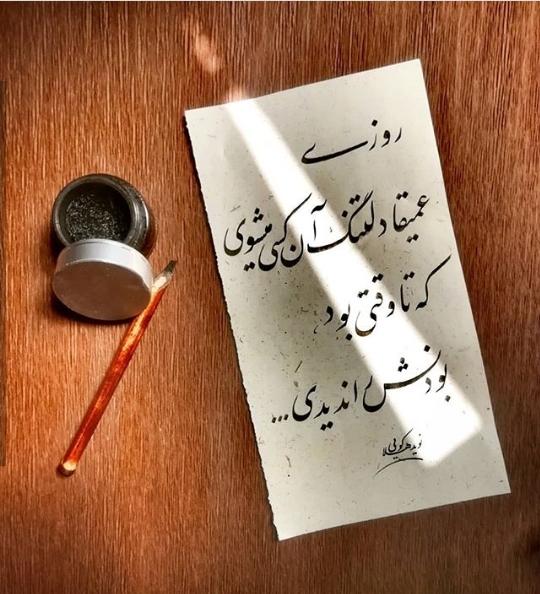 روزی
عمیقا دلتنگ آن کسی میشوی
که تا وقتی بود
بودنش را ندیدی...